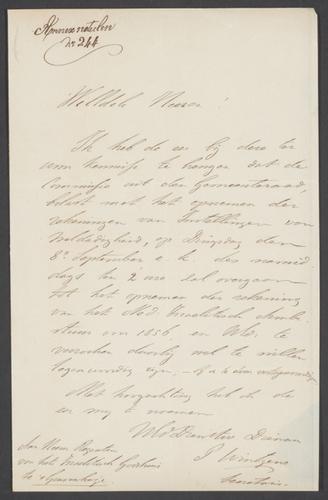 Annexe notulen
No 244
WelEdele Heeren!
Ik heb de eer bij deze ter
uwer kennisse te brengen dat de
Commissie uit den Gemeenteraad,
belast met het opnemen der
rekeningen van Instellingen van
Weldadigheid, op Dingsdag den
8e September e. k. des namid
dags ten 2 ure zal overgaan
tot het opnemen der rekening
van het Ned. Israelitisch Armbe
stuur van 1856 en UEd. te
verzoeken daarbij wel te willen
tegenwoordig zijn,
Met hoogachting heb ik de
eer mij te noemen
UEd Dienstw Dienaar
Secretaris.
Aan Heeren Regenten
van het Israelitisch Gesticht
te 's Gravenhage